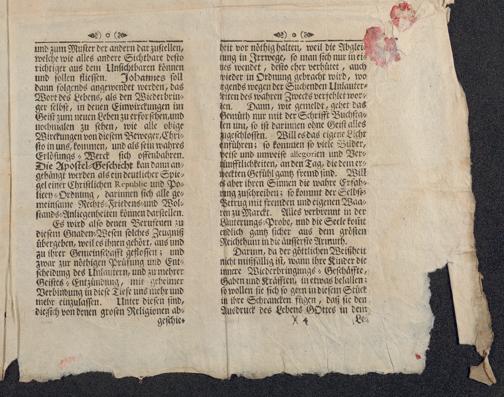 und zum Muster der andern darzustellen,
welche wie alles andere Sichtbare desto
richtiger aus dem Unsichtbaren können
und sollen fliessen. Johannes soll
dann folgends angewendet werden, das
Wort des Lebens, als den Wiederbrin-
ger selbst, in denen Einwirkungen im
Geist zum neuen Leben zu erforschen, und
nochmalen zu sehen, wie alle obige
Wirckungen von diesem Beweger, Chri-
sto in uns, kommen, und als sein wahres
Erlösungs-Werck sich offenbahren.
Die Apostel-Geschicht kan dann an-
gehängt werden als ein deutlicher Spie-
gel einer Christlichen Republic und Po-
licey-Ordnung, darinnen sich alle ge-
meinsame Rechts-Friedens-und Wol-
stands-Anliegenheiten können darstellen.
Es wird also denen Beruffenen zu
diesem Gnaden-Wesen solches Zeugniß
übergeben, weil es ihnen gehört, aus und
zu ihrer Gemeinschafft geflossen; und
zwar zur nöthigen Prüfung und Ent-
scheidung des Unlautern, und zu mehrer
Geistes-Entzündung, mit geheimer
Verbindung in diese Tiefe uns mehr und
mehr einzulassen. Unter diesen sind,
die sich von denen grossen Religionen ab-
geschie-
heit vor nöthig halten, weil die Abglei-
tung in Irrwege, so man sich nur in ei-
nes wendet, desto eher verhütet, auch
wieder in Ordnung gebracht wird, wo
irgends wegen der Suchenden Unlauter-
keiten des wahren Zwecks verfehlet wor-
den. Dann, wie gemeldt, gehet das
Gemüth nur mit der Schrifft Buchsta-
ben um, so ist darinnen ohne Geist alles
zugeschlossen. Will es das eigene Licht
einführen; so kommen so viele Bilder,
weise und umweise allegorien und Ver-
nünfftlichkeiten, an den Tag, die dem er-
weckten Gefühl gantz fremd sind. Will
es aber ihren Sinnen die wahre Erfah-
rung zuschreiben: so kommt der Selbst-
Betrug mit fremden und eigenen Waa-
ren zu Marckt. Alles verbrennt in der
Läuterungs-Probe, und die Seele kömt
endlich gantz sicher aus dem grösten
Reichthum in die äusserste Armuth.
Darum, da der göttlichen Weisheit
nicht mißfällig ist, wann ihre Kinder die
innere Wiederbringungs-Geschäffte,
Gaben und Kräfften, in etwas belallen:
so wollen sie sich so gern in diesem Stück
in ihre Schrancken fügen, daß sie den
Ausdruck des Lebens GOttes in dem
X 4 Le-